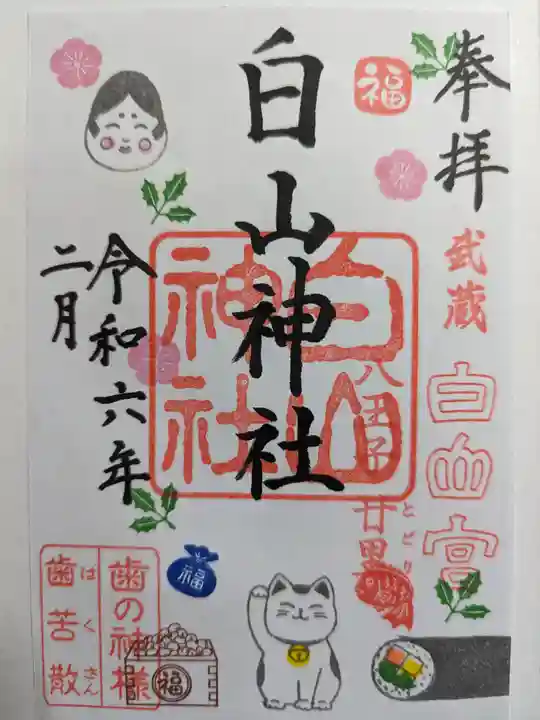 奉拝
武蔵
白山宮
福
白山神社
白山神社
八王子 廿里
とどり
令和六年
二月
歯の神様
歯苦散
はくさん
福
福